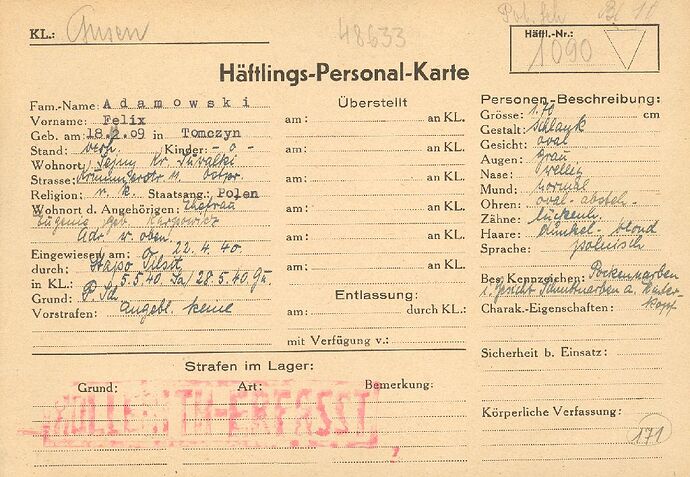 KL.: Gusen
48633
Pol. Sch
Häftl.-Nr.:
1090
Häftlings-Personal-Karte
Fam.-Name: Adamowski
Vorname: Felix
Geb. am: 18.2.09 in Tomczyn
Stand: verh. Kinder: - o -
Wohnort: Sejny Kr. Suwalki
Strasse: 11
Religion: r. k. Staatsang.: Polen
Wohnort d. Angehörigen: Ehefrau
Eugenia geb. Karpowicz
Adr. w. oben.
Eingewiesen am: 22.4.40.
durch: Stapo Tilsit
in KL.: 5.5.40. Da/ 28.5.40. Gu.
Grund: P. Sch
Vorstrafen: Angebl. keine
Überstellt
am: an KL.
am: an KL.
am: an KL.
am: an KL.
am: an KL.
am: an KL.
Entlassung:
am: durch KL.:
mit Verfügung v.:
Personen-Beschreibung:
Grösse: 1.70 cm
Gestalt: schlank
Gesicht: oval
Augen: grau
Nase: wellig
Mund: normal
Ohren: oval-absteh.
Zähne: lückenh.
Haare: dunkel-blond
Sprache: polnisch
Bes. Kennzeichen: Pockennarben
i. Gesicht Schnittnarben a. Hinter-
kopf
Charak.-Eigenschaften:
Sicherheit b. Einsatz:
Körperliche Verfassung:
171
Strafen im Lager:
Grund: Art: Bemerkung:
HOLLERITH-ERFASST